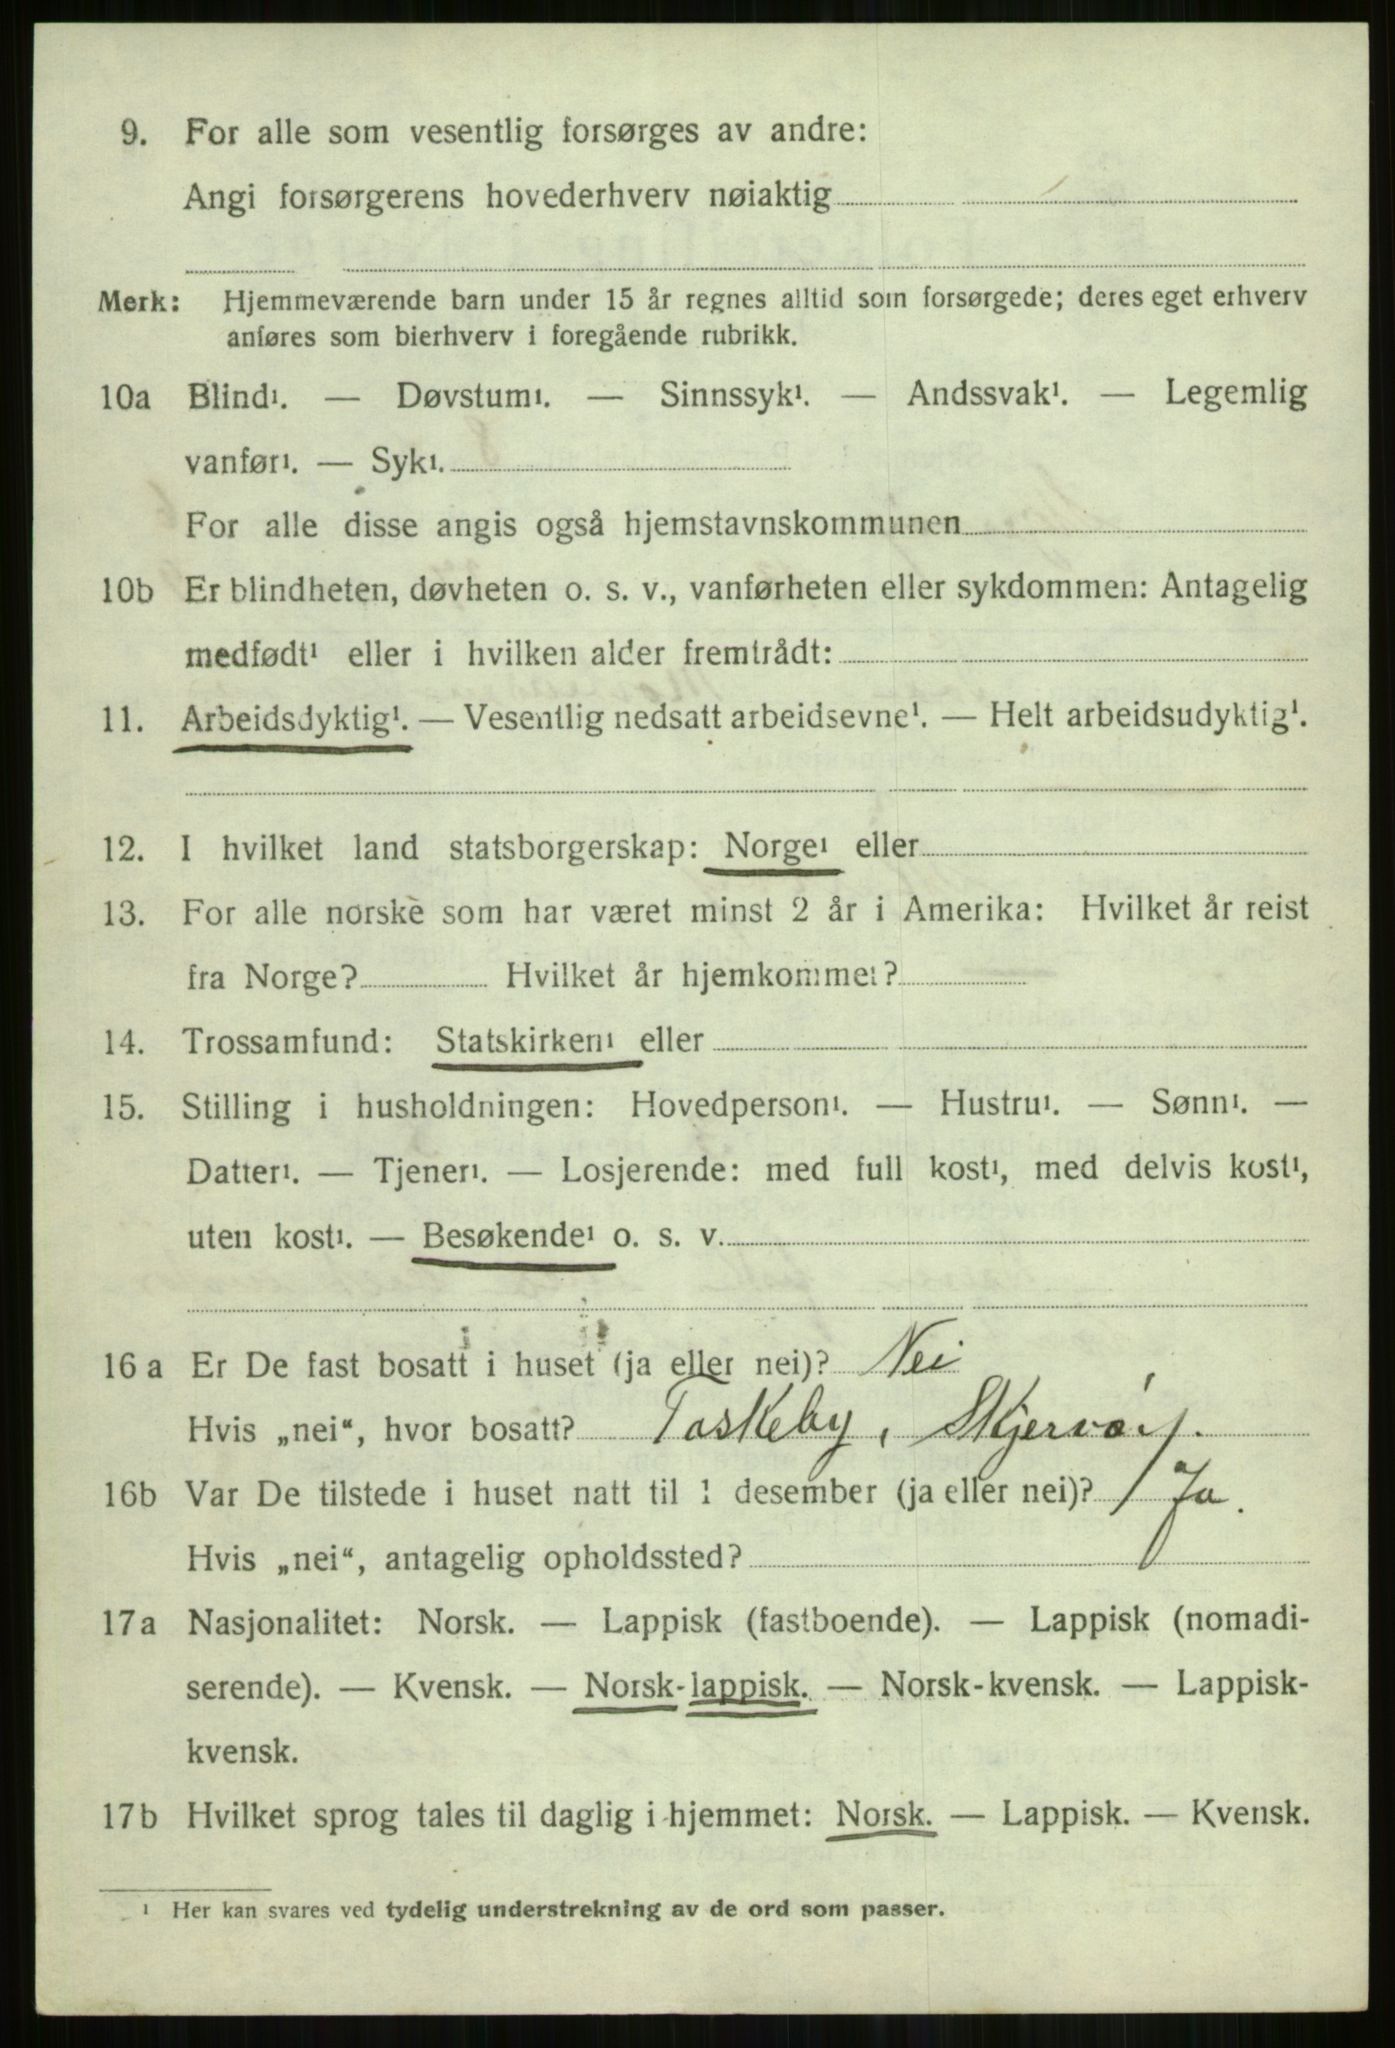 9. For alle som vesentlig forsørges av andre:
Angi forsørgerens hovederhverv nøiaktig
Merk: Hjemmeværende barn under 15 år regnes alltid som forsørgede; deres eget erhverv
anføres som bierhverv i foregående rubrikk.
10a Blind¹. — Døvstum¹. — Sinnssyk¹. — Andssvak¹. — Legemlig
vanfør¹. — Syk¹.
For alle disse angis også hjemstavnskommunen
10b Er blindheten, døvheten o. s. v., vanførheten eller sykdommen: Antagelig
medfødt¹ eller i hvilken alder fremtrådt:
11. Arbeidsdyktig¹. — Vesentlig nedsatt arbeidsevne¹. — Helt arbeidsudyktig¹.
12. I hvilket land statsborgerskap: Norge¹ eller
13. For alle norske som har været minst 2 år i Amerika: Hvilket år reist
fra Norge? Hvilket år hjemkommet?
14. Trossamfund: Statskirken¹ eller
15. Stilling i husholdningen: Hovedperson¹. — Hustru¹. — Sønn¹. —
Datter¹. — Tjener¹. — Losjerende: med full kost¹, med delvis kost¹,
uten kost¹. — Besøkende¹ o. s. v.
16 a Er De fast bosatt i huset (ja eller nei)? Nei
Hvis „nei“, hvor bosatt? Taskeby, Skjervøy.
16b Var De tilstede i huset natt til 1 desember (ja eller nei)? Ja.
Hvis „nei“, antagelig opholdssted?
17a Nasjonalitet: Norsk. — Lappisk (fastboende). — Lappisk (nomadi-
serende). — Kvensk. — Norsk-lappisk. — Norsk-kvensk. — Lappisk-
kvensk.
17b Hvilket sprog tales til daglig i hjemmet: Norsk. — Lappisk. — Kvensk.
¹ Her kan svares ved tydelig understrekning av de ord som passer.